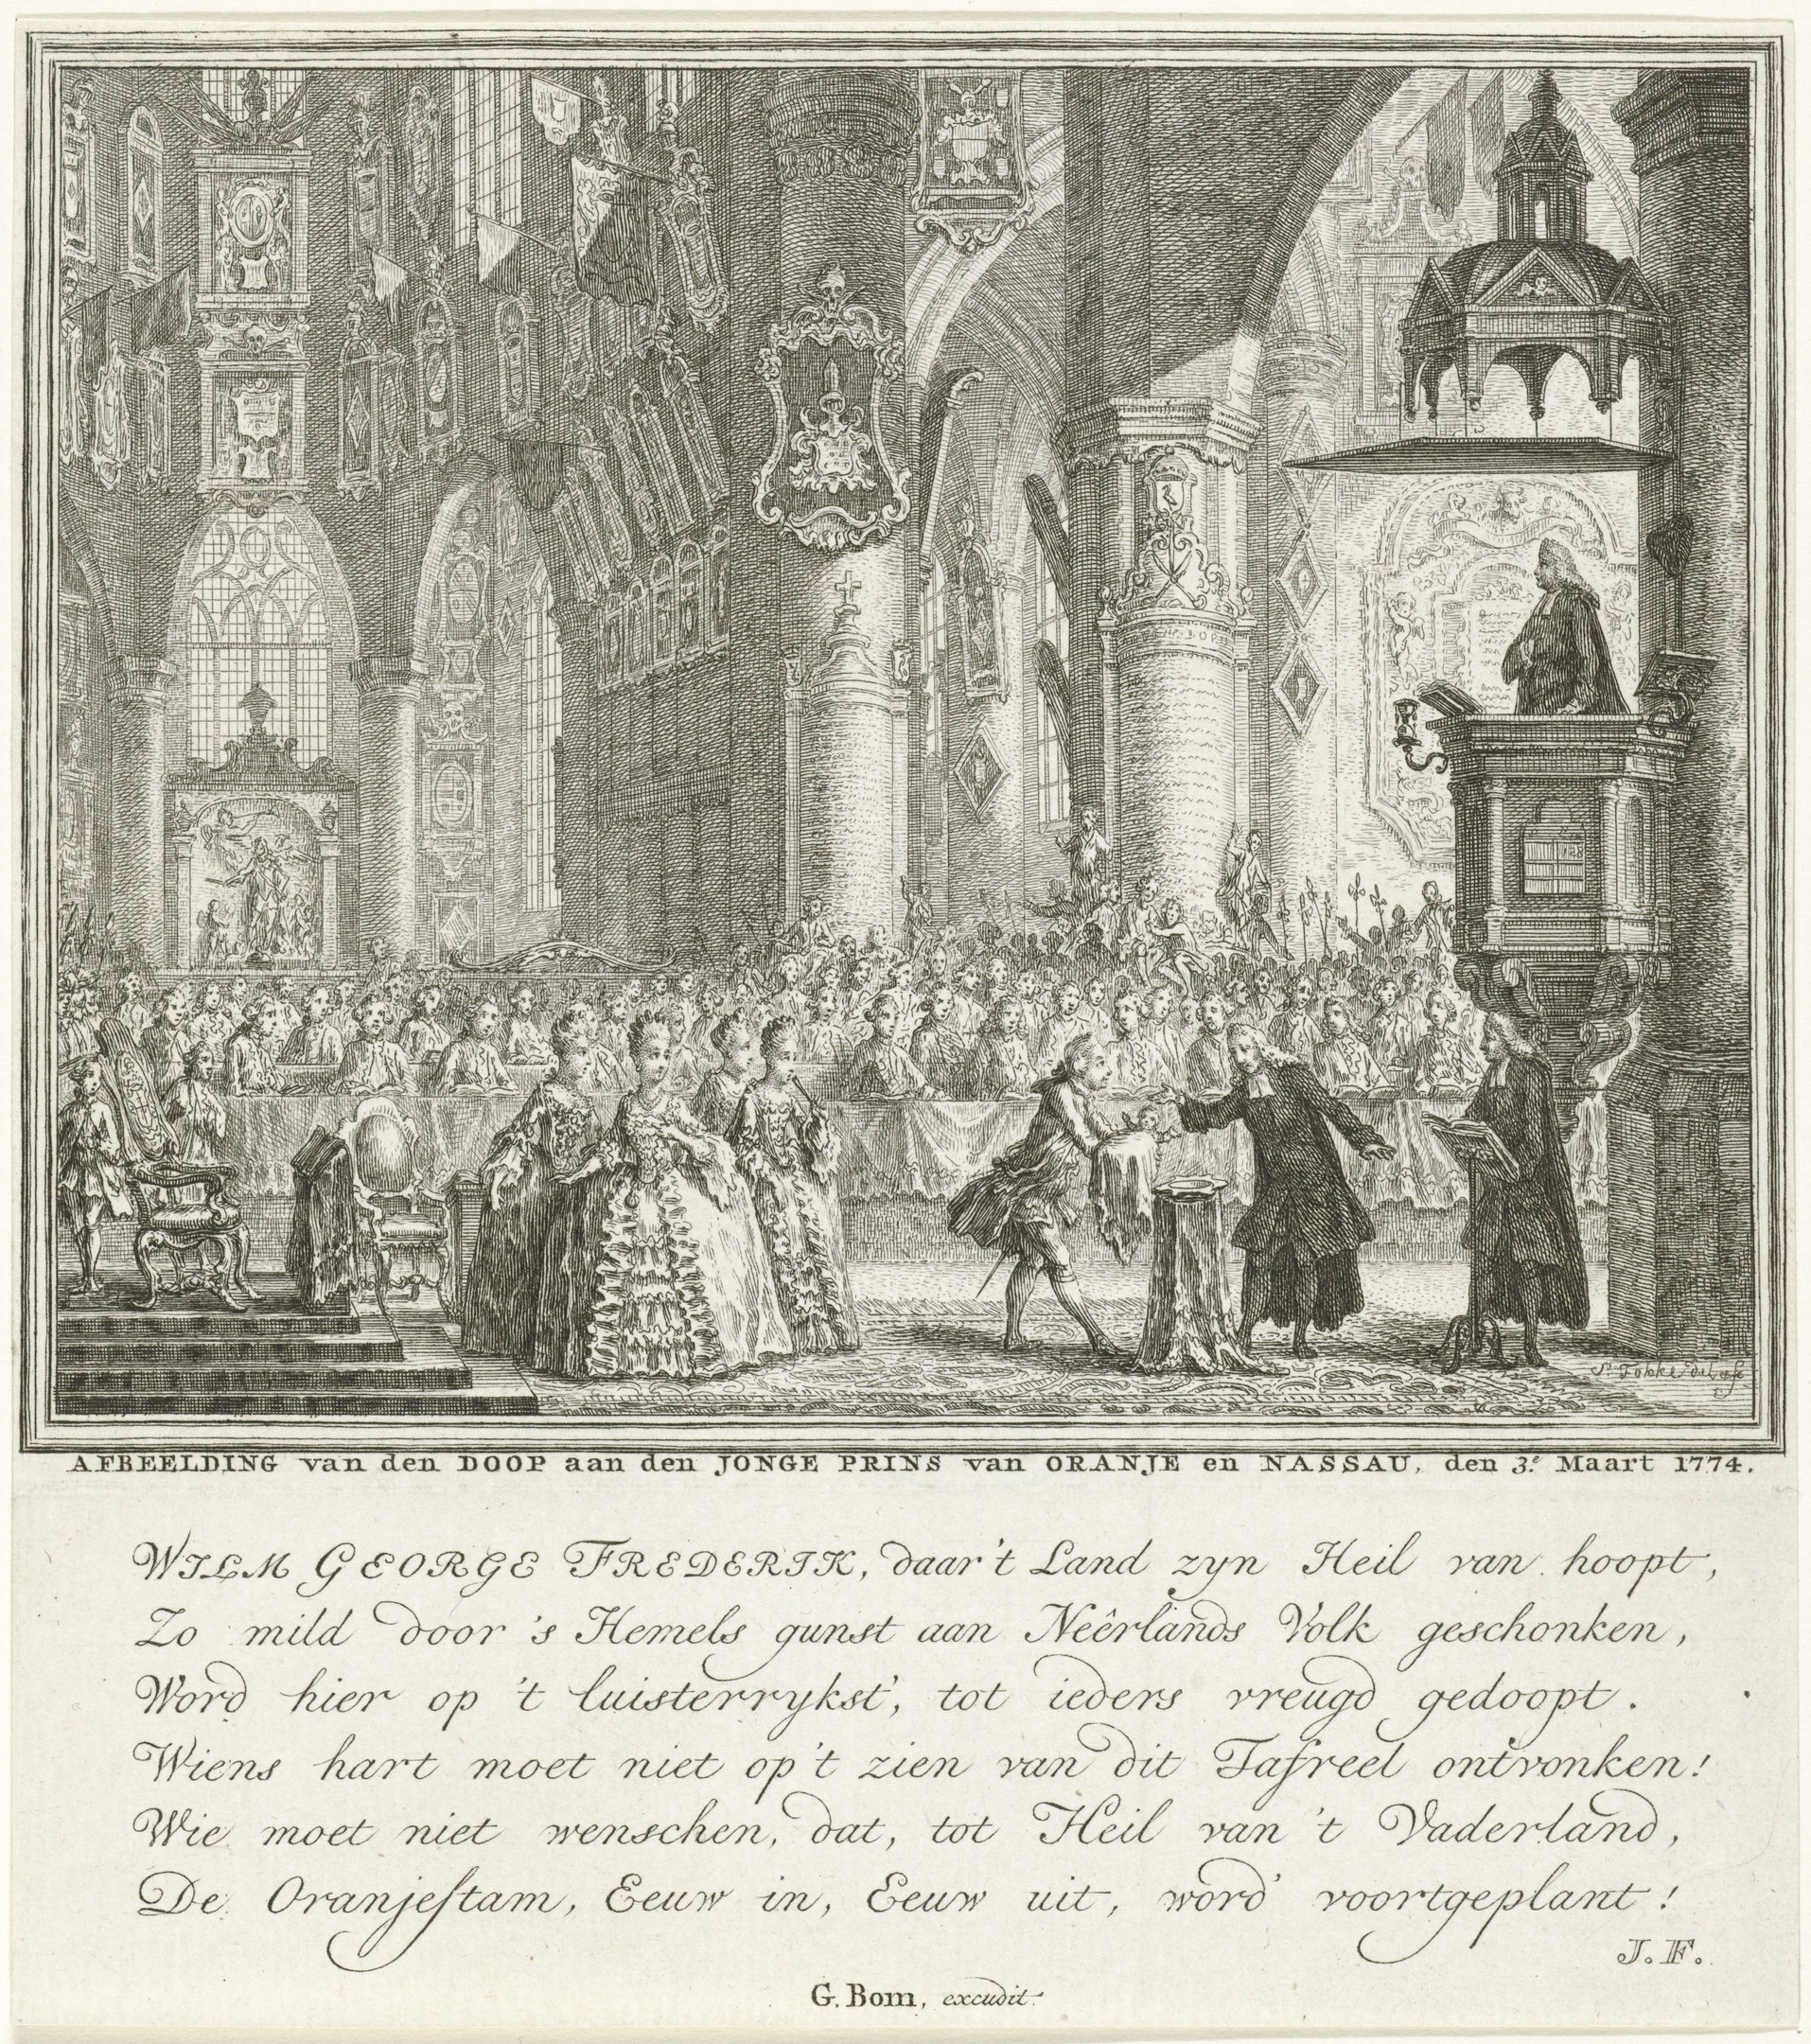 S. Fokke del. et f.
AFBEELDING van den DOOP aan den JONGE PRINS van ORANJE en NASSAU, den 3.e Maart 1774.
WILM GEORGE FREDERIK, daar 't Land zyn Heil van hoopt,
Zo mild door 's Hemels gunst aan Neêrlands Volk geschonken,
Word hier op 't luisterrykst', tot ieders vreugd gedoopt.
Wiens hart moet niet op 't zien van dit Tafreel ontvonken!
Wie moet niet wenschen, dat, tot Heil van 't Vaderland,
De Oranjeſtam, Eeuw in, Eeuw uit, word' voortgeplant!
J. F.
G. Bom, excudit.